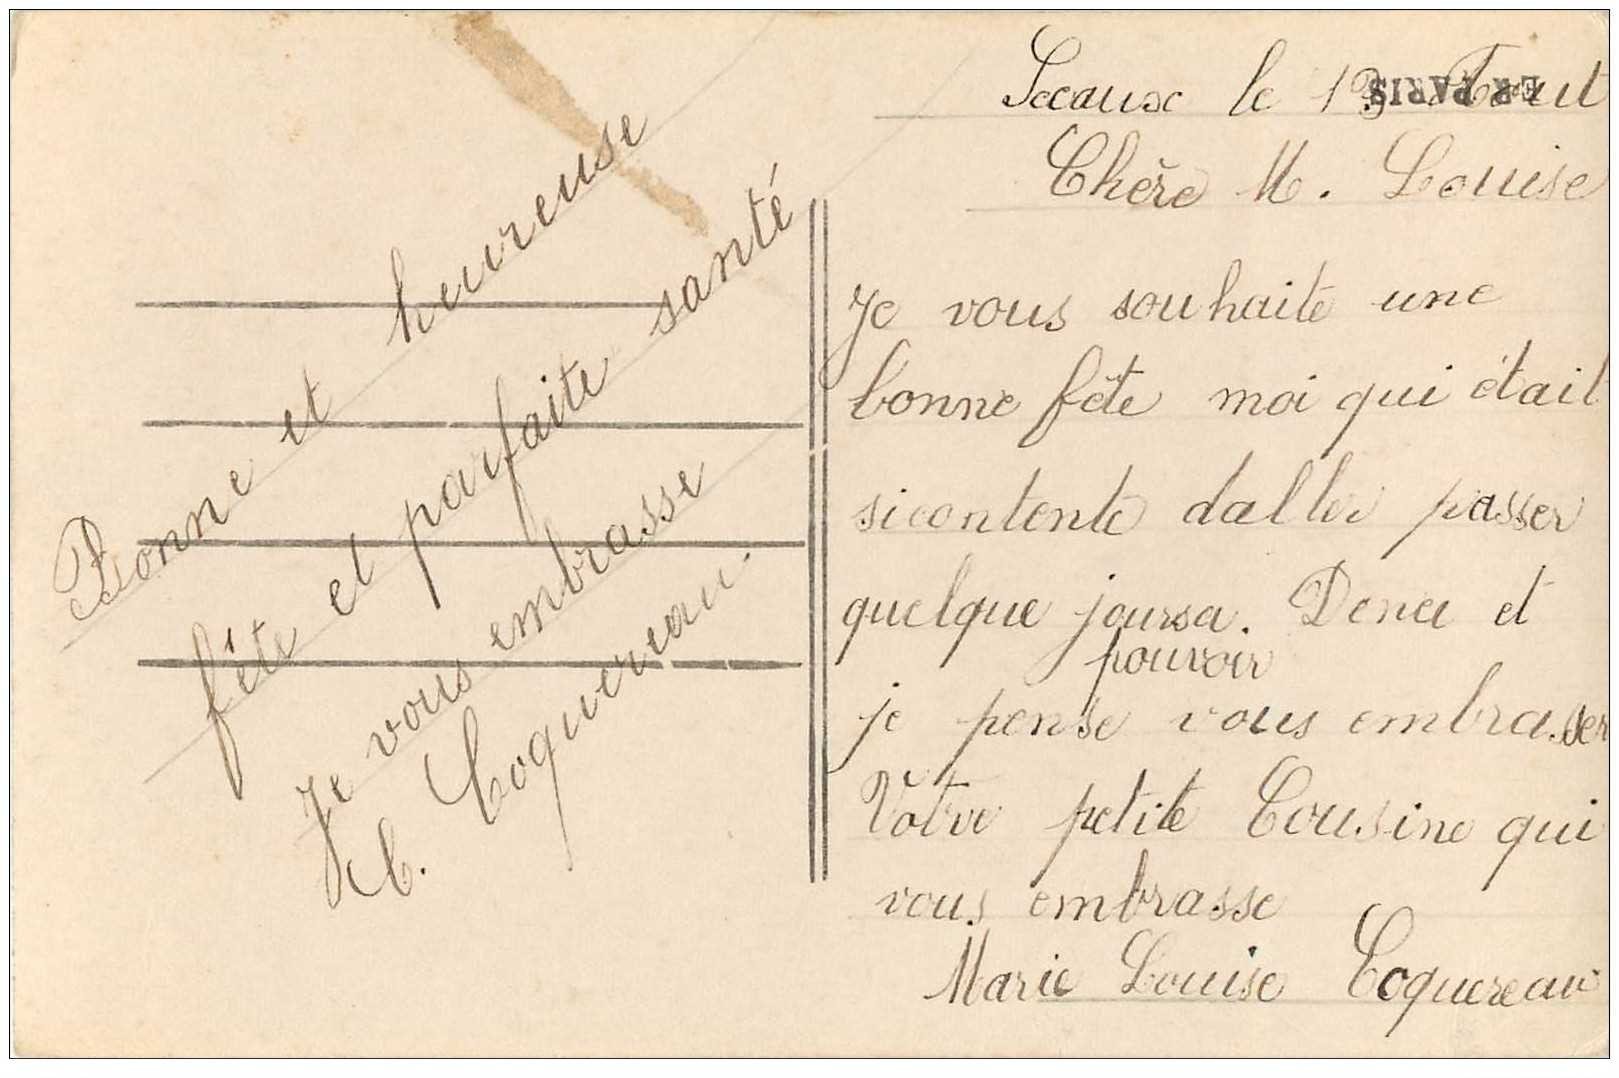 Sceaux le 13 Aout
ER PARIS
Chère M. Louise
Je vous souhaite une
bonne fête moi qui était
sicontente daller passer
quelque joursa. Denée et
pouvoir
je pense vous embrasser
Votre petite Cousine qui
vous embrasse
Marie Louise Coquereau
Bonne et heureuse
fête et parfaite santé
Je vous embrasse
Coquereau.